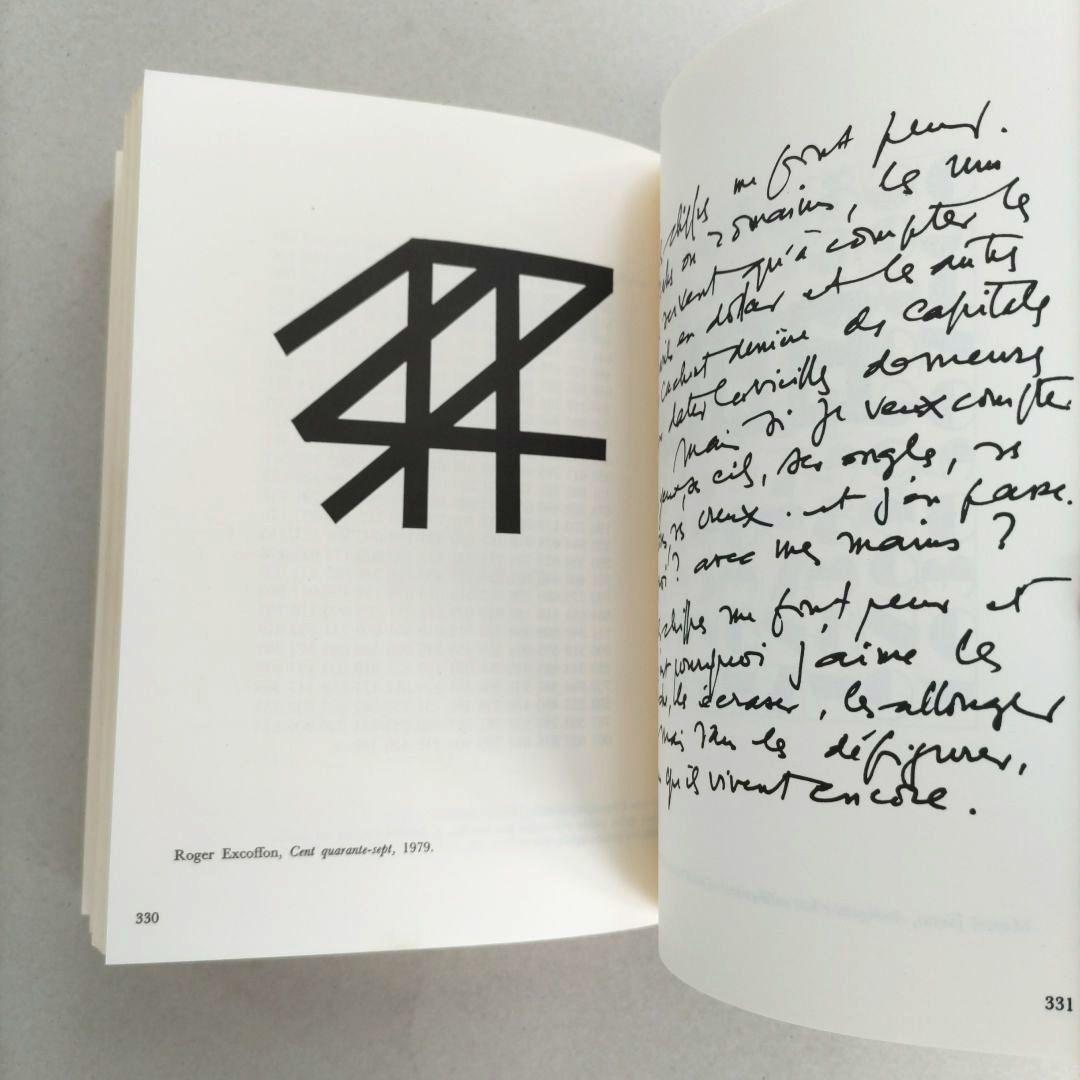 Roger Excoffon, Cent quarante-sept, 1979.
330
chiffres me font peur.
ou romains, les uns
servent qu'à compter les
en dollar et les autres
cachent derrière des capitales
dater les vieilles demeures
mais si je veux compter
cils, ses ongles, ses
creux. et j'en passe.
? avec mes mains ?
chiffres me font peur et
pourquoi j'aime les
les écraser, les allonger
mais sans les défigurer,
qu'ils vivent encore.
331